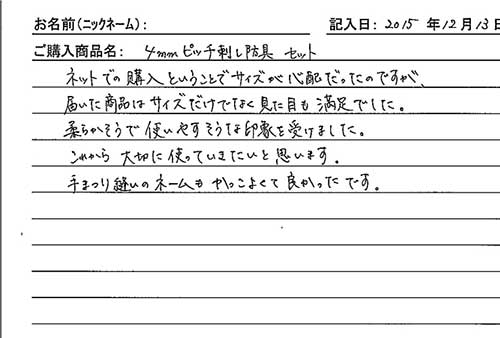 お名前(ニックネーム): 記入日: 2015 年12月13日
ご購入商品名: 4mmピッチ刺し防具 セット
ネットでの購入ということでサイズが心配だったのですが、
届いた商品はサイズだけでなく見た目も満足でした。
柔らかそうで使いやすそうな印象を受けました。
これから大切に使っていきたいと思います。
手まつり縫いのネームもかっこよくて良かったです。